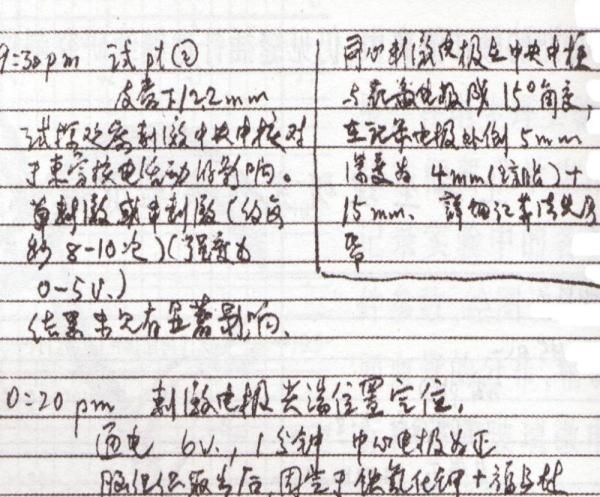 9:30pm 试 pt ②
皮层下 1.22mm
试探观察刺激中央中核对
于束旁核电活动的影响。
单刺激或串刺激 (约每
秒 8-10次) (强度为
0-5V.)
结果未见有显著影响.
同心刺激电极在中央中核
与记录电极成 15°角度,
在记录电极外侧 5mm
深度为 4mm () +
15mm. 详细记录请见后
0:20 pm 刺激电极尖端位置定位.
通电 6V., 1分钟 中心电极为正
脑组织取出后,用 铁氰化钾 +